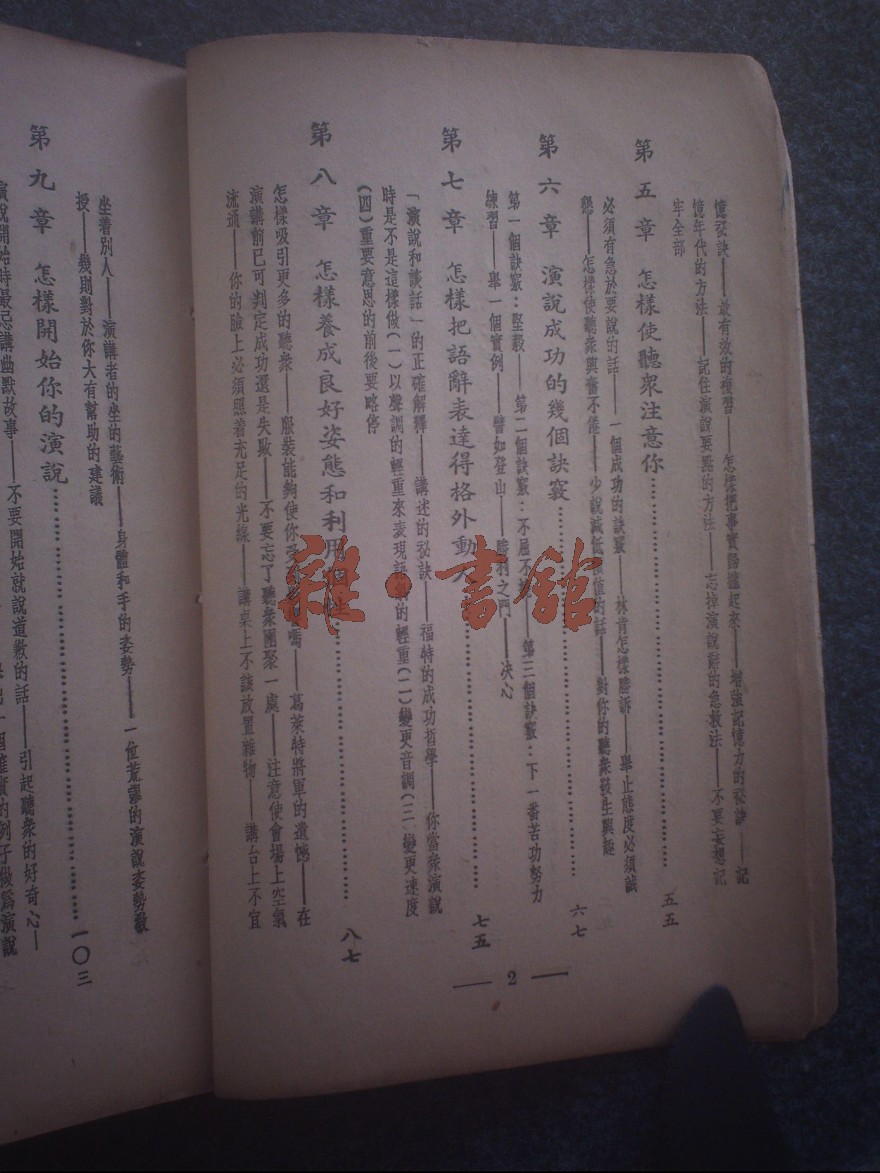 憶秘訣——最有效的複習——怎樣把事實歸攏起來——增強記憶力的祕訣——記
憶年代的方法——記住演說要點的方法——忘掉演說辭的急救法——不要妄想記
牢全部
第五章 怎樣使聽衆注意你……五五
必須有急於要說的話——一個成功的訣竅——林肯怎樣勝訴——舉止態度必須誠
懇——怎樣使聽衆興奮不倦——少說減低 值的話——對你的聽衆發生興趣
第六章 演說成功的幾個訣竅……六七
第一個訣竅：堅毅——第二個訣竅：不屈不 ——第三個訣竅：下一番苦功努力
練習——舉一個實例——譬如登山——勝利之門——決心
第七章 怎樣把語辭表達得格外動人……七五
「演說和談話」的正確解釋——講述的祕訣——福特的成功哲學——你當衆演說
時是不是這樣做（一）以聲調的輕重來表現語 的輕重（二）變更音調（三）變更速度
（四）重要意思的前後要略停
第八章 怎樣養成良好姿態和利用個性……八七
怎樣吸引更多的聽衆——服裝能夠使你受 嗎——葛萊特將軍的遺憾——在
演講前已可判定成功還是失敗——不要忘了聽衆團聚一處——注意使會場上空氣
流通——你的臉上必須照着充足的光線——講桌上不該放置雜物——講台上不宜
2
坐着別人——演講者的坐的藝術——身體和手的姿勢——一位荒謬的演說姿勢教
授——幾則對於你大有幫助的建議
第九章 怎樣開始你的演說……一〇三
演說開始時最忌講幽默故事——不要開始就說道歉的話——引起聽衆的好奇心—
一個確實的例子做爲演說
雜·書館